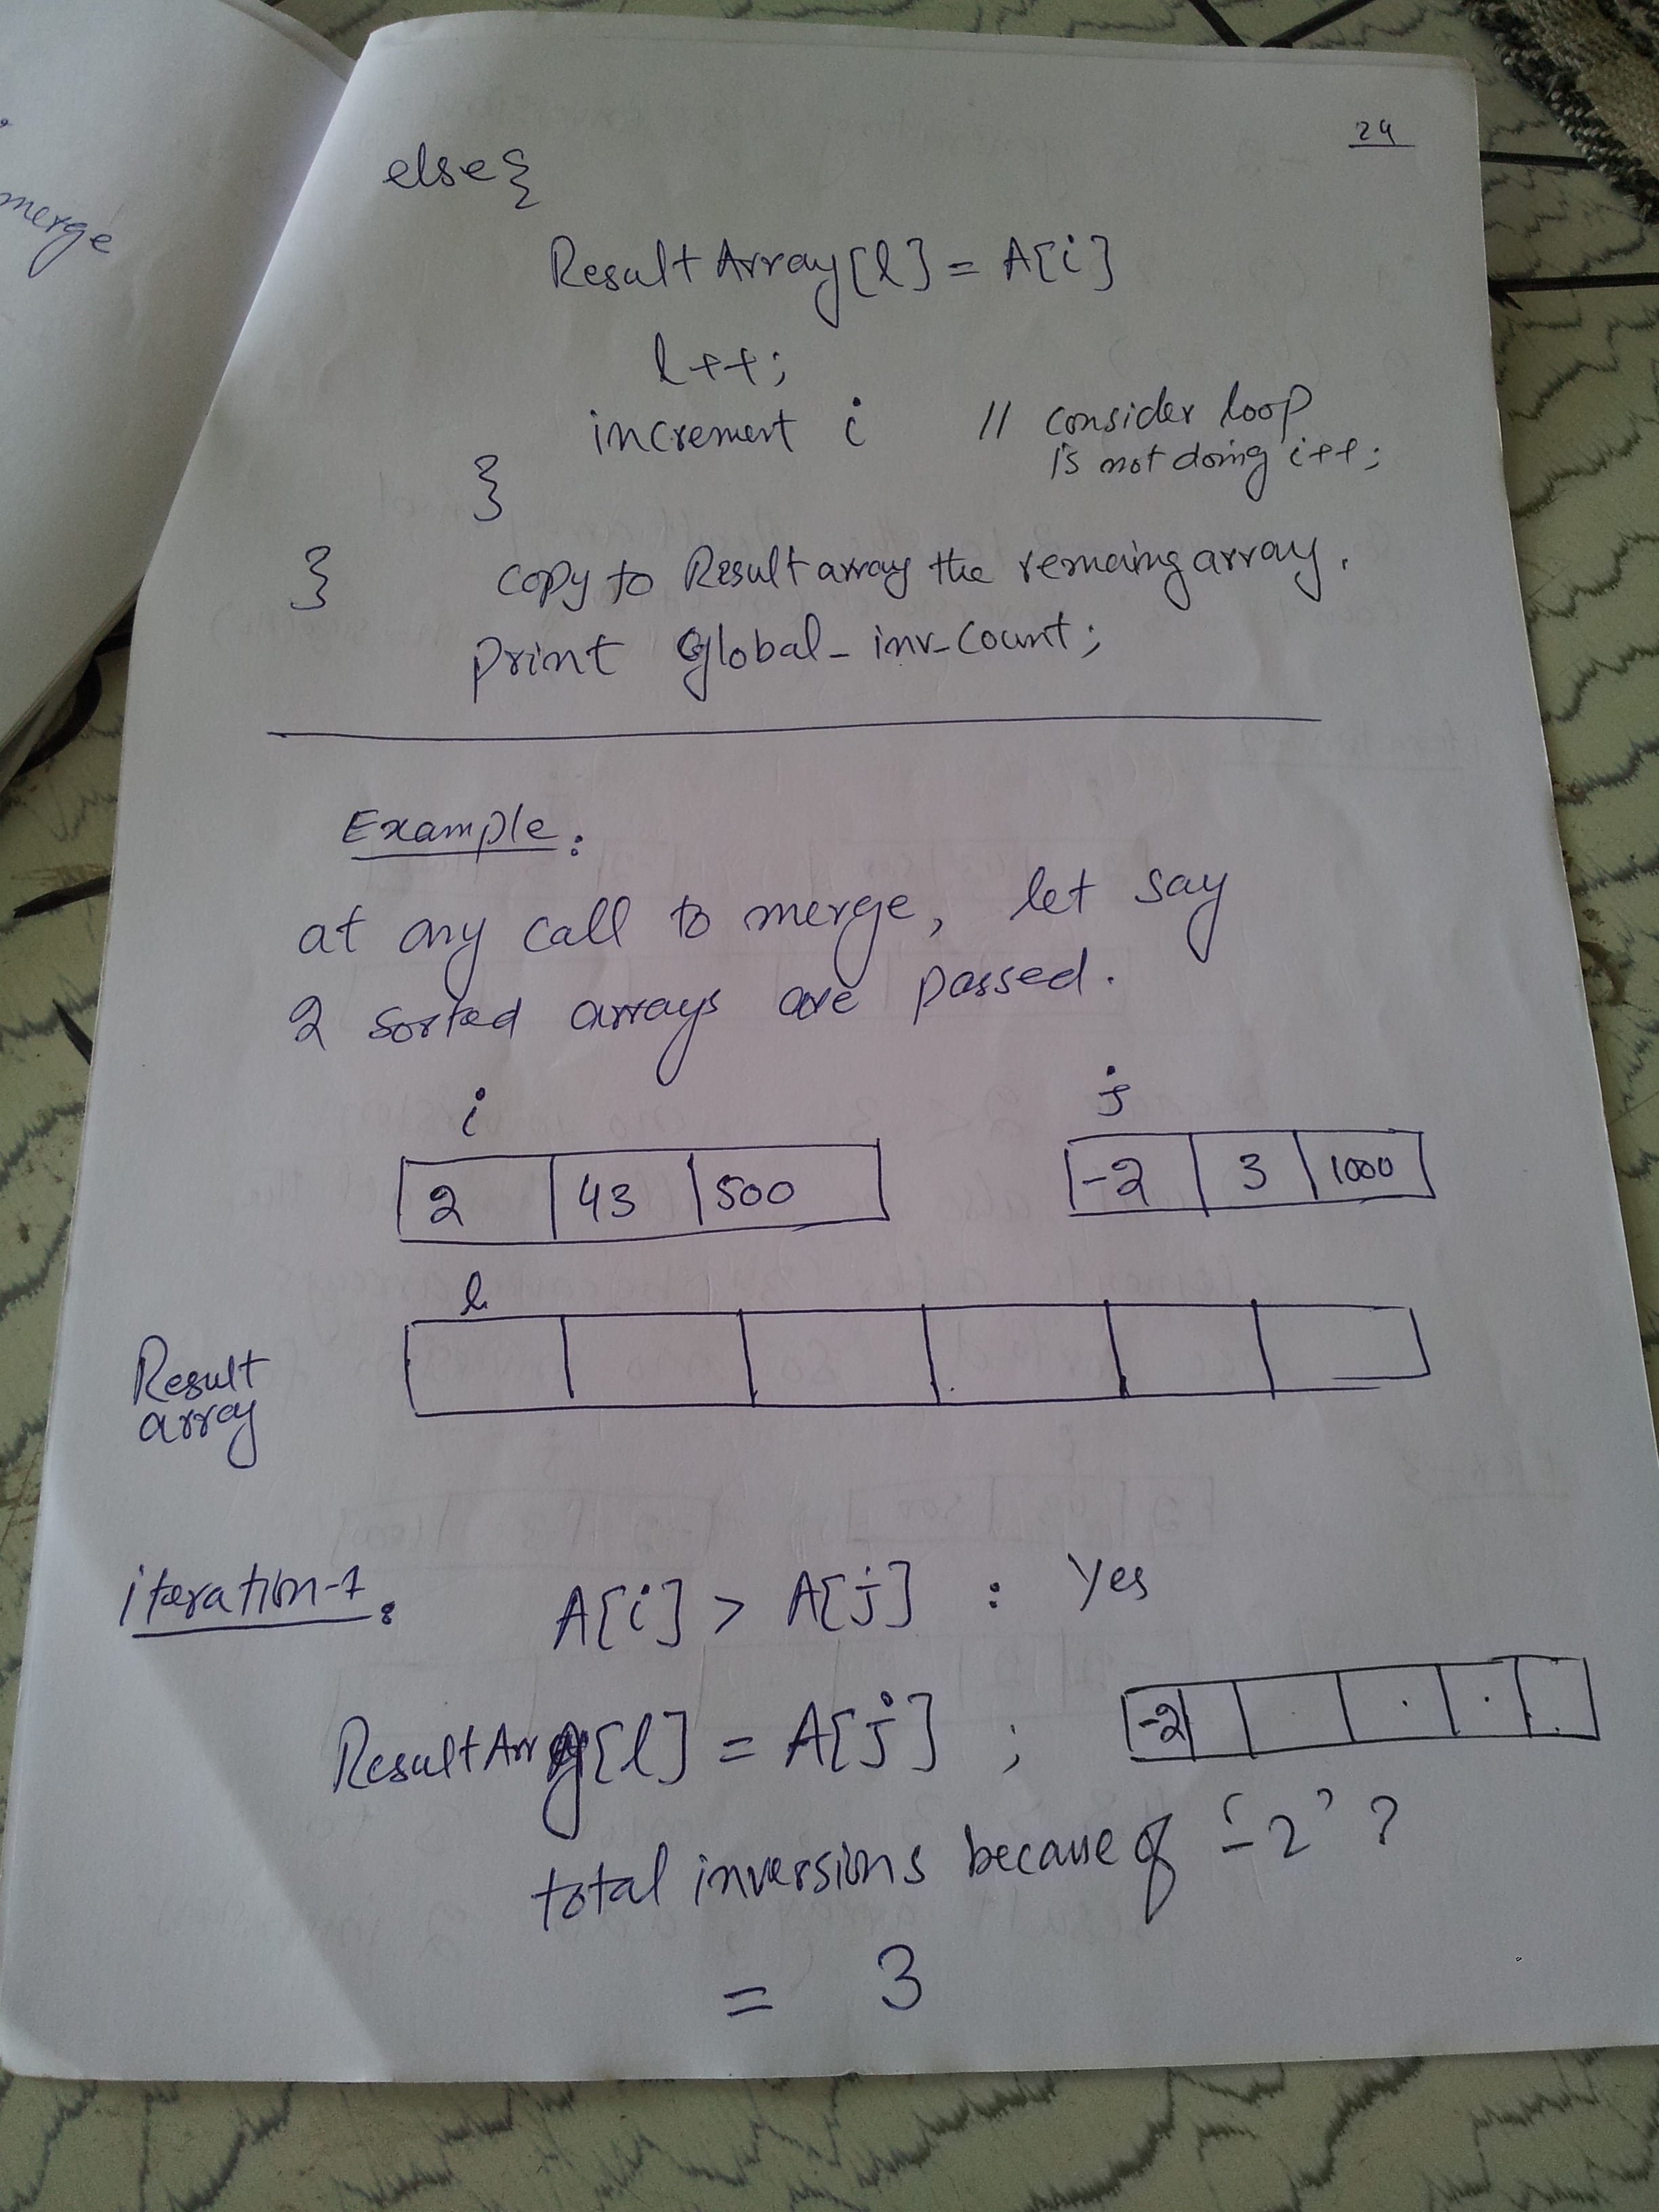 merge
24
else {
Result Array[l] = A[i]
l++;
increment i // consider loop
is not doing i++;
}
copy to Result array the remaining array.
}
print global_inv_count;
Example:
at any call to merge, let say
2 sorted arrays are passed.
i j
2 43 500 -2 3 1000
l
Result
array
iteration-1:
A[i] > A[j] : Yes
Result Array[l] = A[j]; -2
total inversions because of '-2'?
= 3